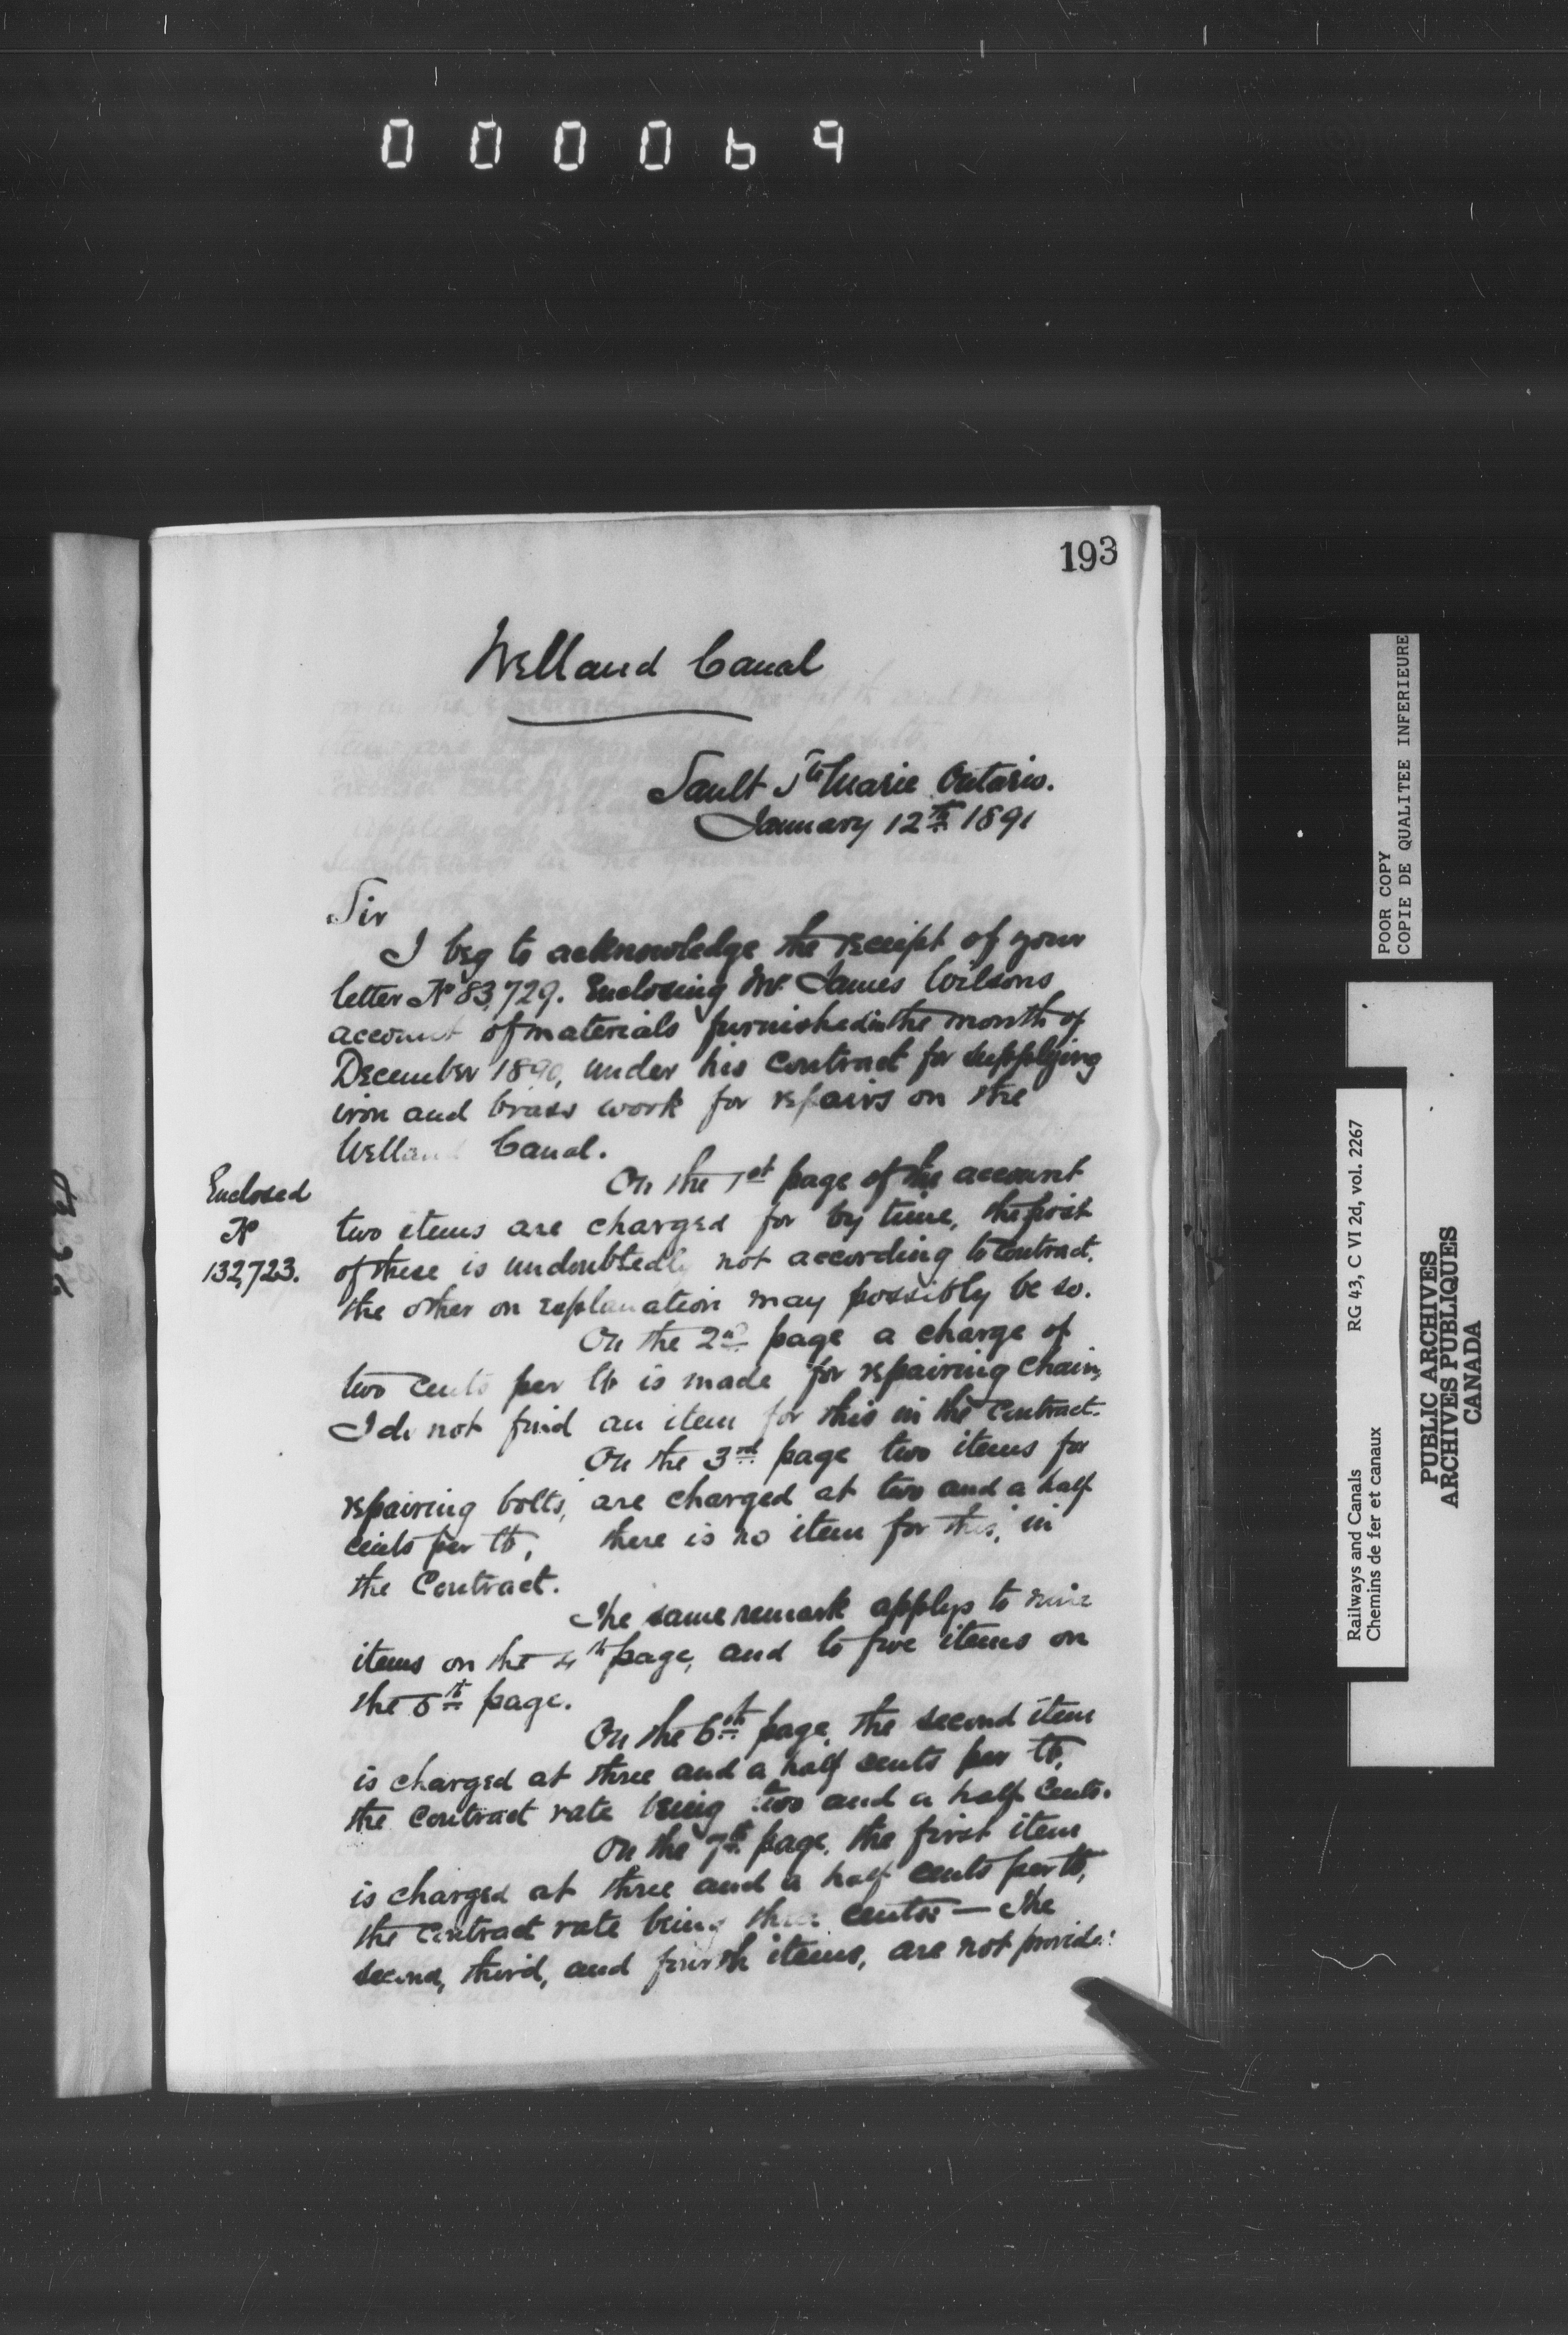 000069
193
Welland Canal
Sault Ste Marie Ontario.
January 12th 1891
Sir
I beg to acknowledge the receipt of your
letter No 83,729. Enclosing Mr James Wilsons
account of materials furnished in the month of
December 1890, under his contract for supplying
iron and brass work for repairs on the
Welland Canal.
On the 1st page of the account
Enclosed
No
132,723.
two items are charged for by time, the first
of these is undoubtedly not according to Contract.
the other on explanation may possibly be so.
On the 2nd page a charge of
two cents per lb is made for repairing chain,
I do not find an item for this in the Contract.
On the 3rd page two items for
repairing bolts, are charged at two and a half
cents per lb, there is no item for this, in
the Contract.
The same remark applys to nine
items on the 4th page, and to five items on
the 5th page.
On the 6th page, the second item
is charged at three and a half cents per lb,
the contract rate being two and a half cents.
On the 7th page, the first item
is charged at three and a half cents per lb,
the contract rate being three cents — The
second, third, and fourth items, are not provided
POOR COPY
COPIE DE QUALITEE INFERIEURE
RG 43, C VI 2d, vol. 2267
Railways and Canals
Chemins de fer et canaux
PUBLIC ARCHIVES
ARCHIVES PUBLIQUES
CANADA